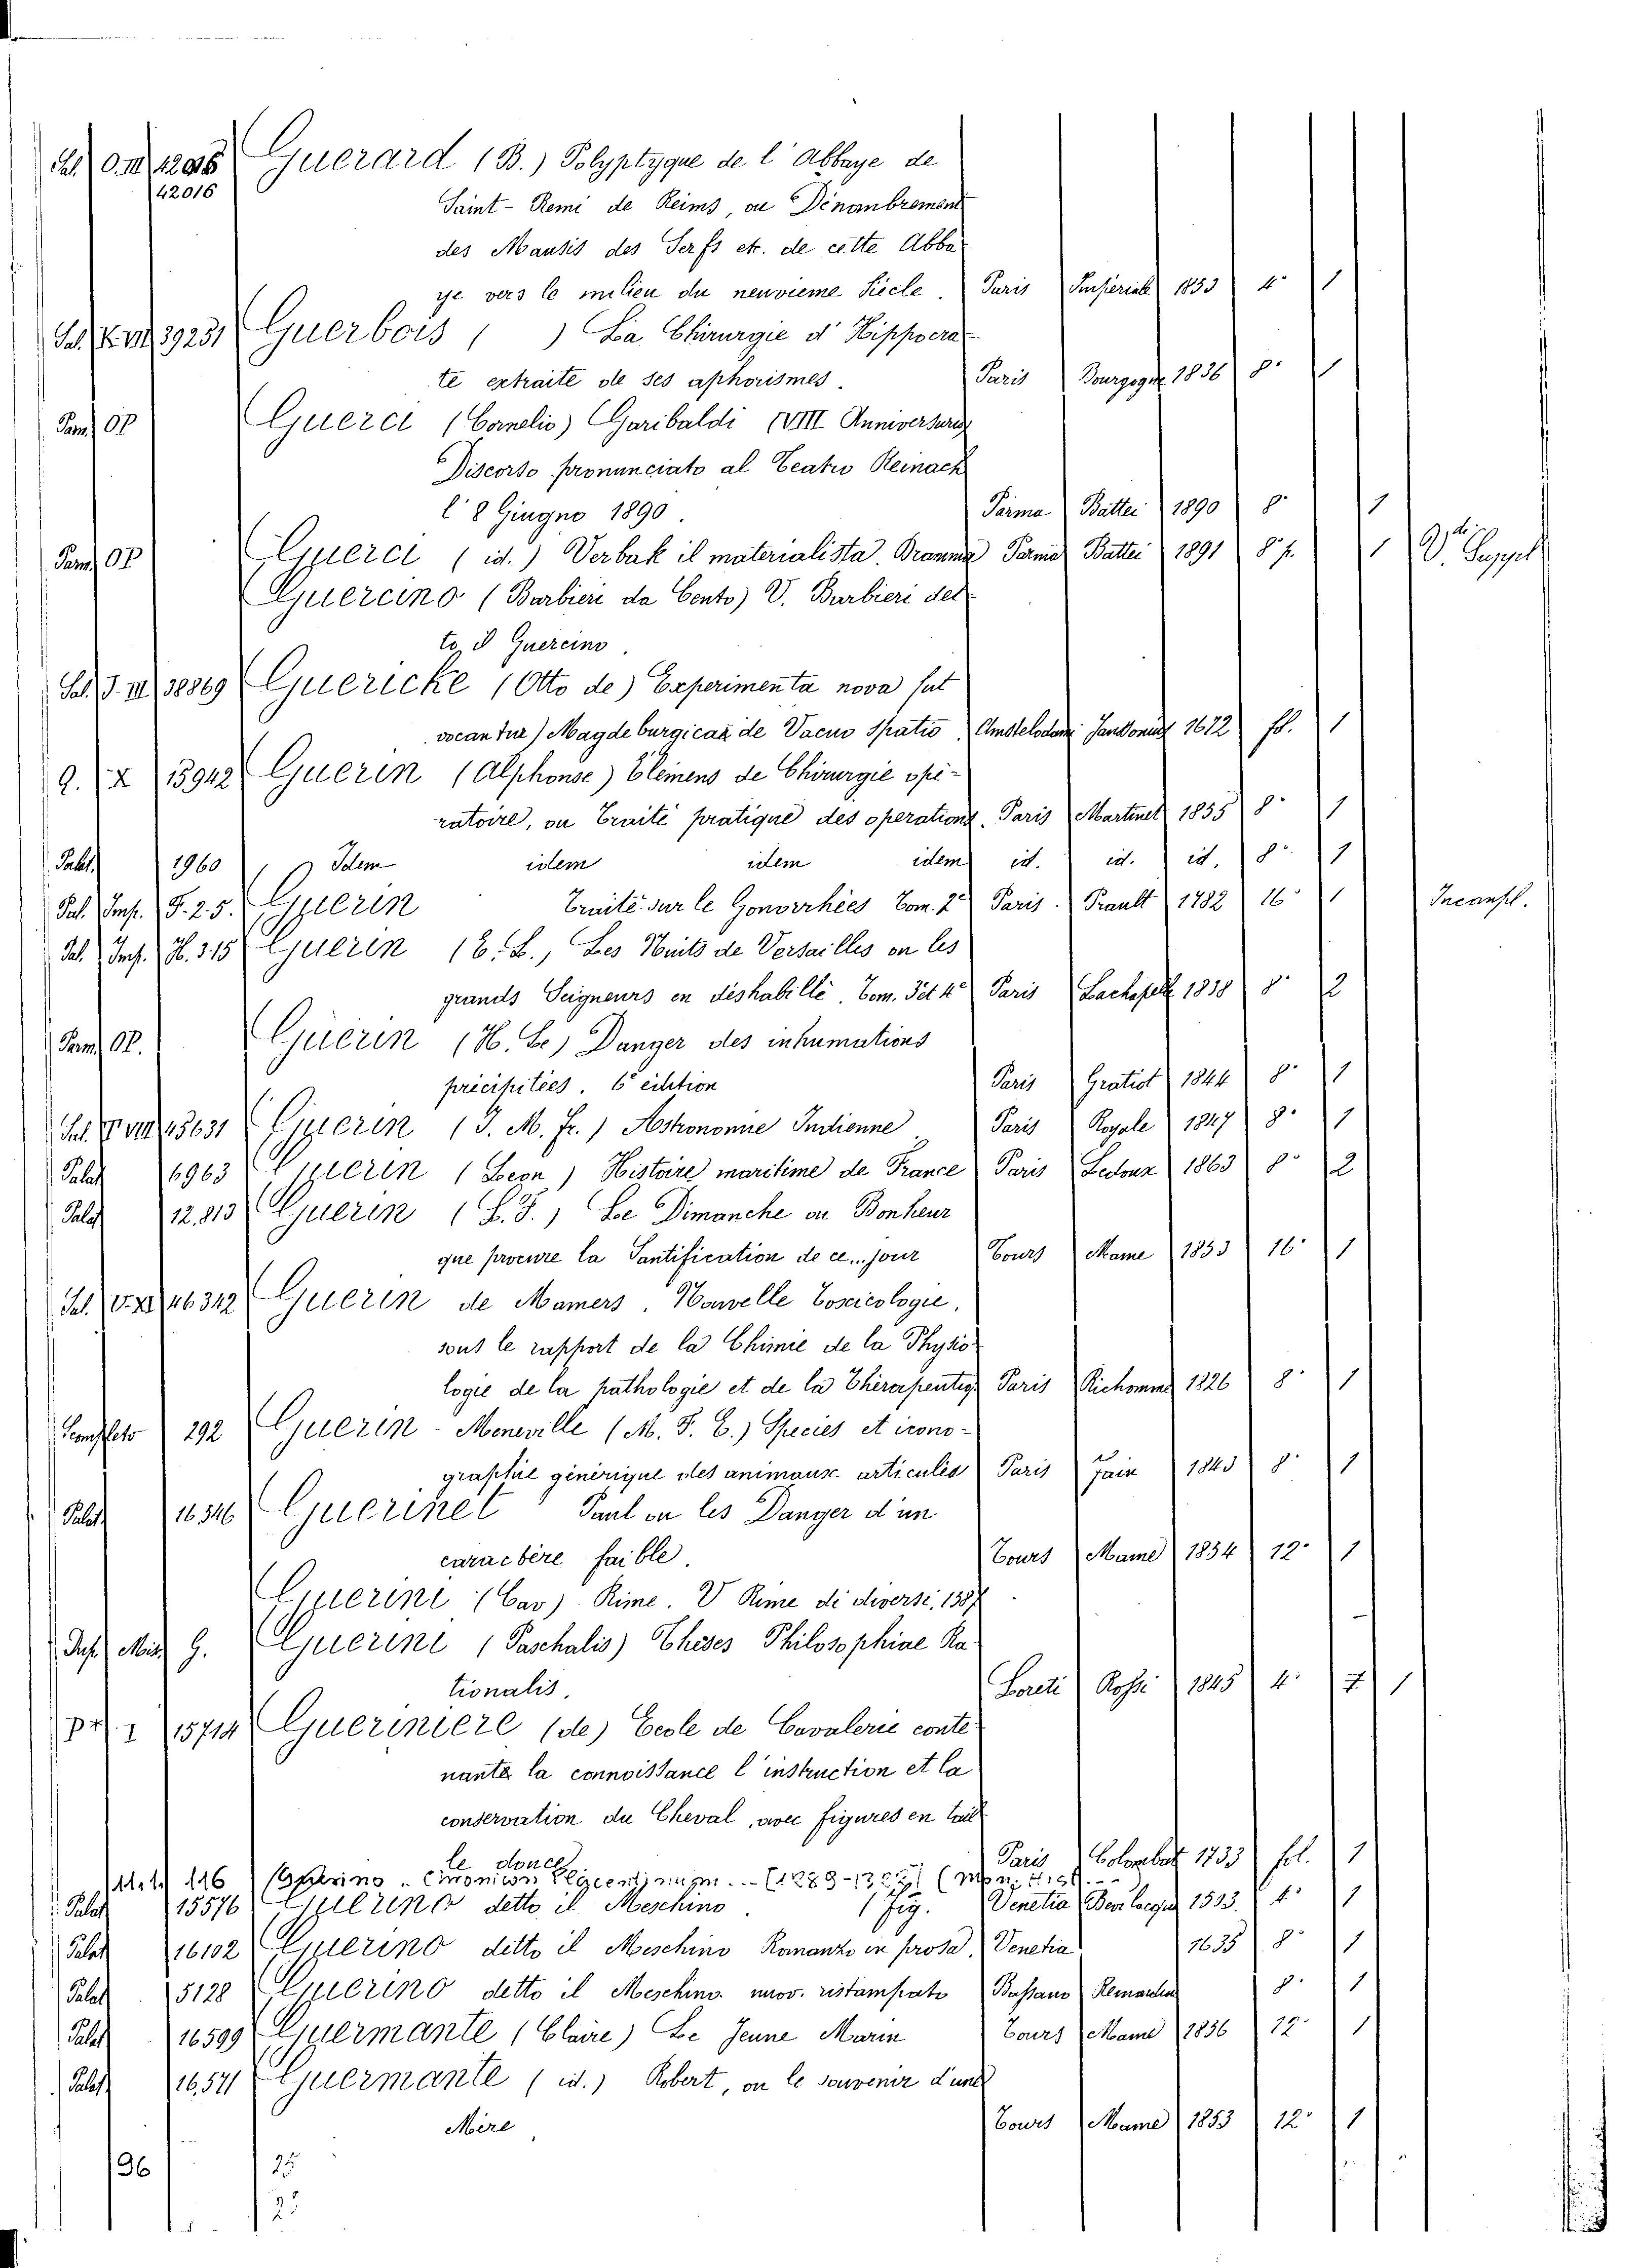 Sal. O.III 1295 Guerard (B.) Polyptyque de l'Abbaye de
42016 Saint-Remi de Reims, ou Dénombrement
des Mansis des Serfs etc. de cette Abba-
ye vers le milieu du neuvieme Siecle. Paris Imperiale 1853 4° 1
Sal. V.VII 39231 Guerbois ( ) La Chirurgie d'Hippocra-
te extraite de ses aphorismes. Paris Bourgogne 1836 8° 1
Parm. OP Guerci (Cornelio) Garibaldi (VIII Anniversario)
Discorso pronunciato al Teatro Reinach
l'8 Giugno 1890. Parma Battei 1890 8° 1
Parm. OP Guerci (id.) Verbak il materialista. Dramma Parma Battei 1891 8° p. 1 Vdi Suppl
Guercino (Barbieri da Cento) V. Barbieri det-
to il Guercino.
Sal. J. III 38869 Guericke (Otto de) Experimenta nova (ut
vocantur) Magdeburgicaa de Vacuo Spatio. Amstelodami Janssonius 1672 fol. 1
G. X 15942 Guerin (Alphonse) Elémens de Chirurgie opé-
ratoire, ou Traité pratique des operations. Paris Martinet 1855 8° 1
Palat. 1960 Idem idem idem idem id. id. id. 8° 1
Pal. Imp. F. 2. 5. Guerin Traité sur le Gonorrhées Tom. 2° Paris. Prault 1782 16° 1 Incompl.
Pal. Imp. H. 315 Guerin (E. L., Les Nuits de Versailles ou les
grands Seigneurs en déshabillé. Tom. 3 et 4° Paris Lachapelle 1838 8° 2
Parm. OP. Guerin (H. Le) Danger des inhumations
précipitées. 6e edition Paris Gratiot 1844 8° 1
Sal. V VIII 45631 Guerin (J. M. Fr.) Astronomie Indienne Paris Royale 1847 8° 1
Palat 6963 Guerin (Leon) Histoire maritime de France Paris Ledoux 1863 8° 2
Palat 12.813 Guerin (L. F.) Le Dimanche ou Bonheur
que procure la Santification de ce... jour Tours Mame 1853 16° 1
Sal. V. XI 46342 Guerin de Mamers. Nouvelle Toscicologie,
sous le rapport de la Chimie de la Physio-
logie de la pathologie et de la Therapeutiq Paris Richomme 1826 8° 1
292 Guerin-Meneville (M. F. E.) Species et icono-
graphie générique des animaux articulés Paris Fain 1843 8° 1
Palat 16546 Guerinet Paul ou les Danger d'un
caractère faible. Tours Mame 1854 12° 1
Guerini (Cav) Rime. V Rime di diversi, 1587
Guerini (Paschalis) Theses Philosophiae Ra-
tionalis. Loreti Rossi 1845 4° 1
15714 Gueriniere (de) Ecole de Cavalerie conte-
nante la connoissance l'instruction et la
conservation du Cheval, avec figures en tail-
le douce Paris Colombat 1733 fol. 1
116 Guerino. Chronicon
Palat 15576 Guerino detto il Meschino. (fig. Venetia Bevilacqua 1593. 4° 1
Palat 16102 Guerino detto il Meschino Romanzo in prosa. Venetia 1635 8° 1
Palat 5128 Guerino detto il Meschino nuov. ristampato Bassano Remondini 8° 1
Palat 16599 Guermante (Claire) Le Jeune Marin Tours Mame 1856 12° 1
Palat 16571 Guermante (id.) Robert, ou le souvenir d'une
Mére Tours Mame 1853 12° 1
36 25